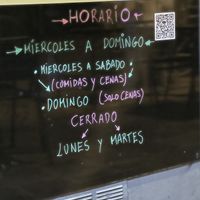 HORARIO
MIERCOLES A DOMINGO
• MIERCOLES A SABADO
(COMIDAS Y CENAS)
• DOMINGO (SOLO CENAS)
CERRADO
LUNES Y MARTES